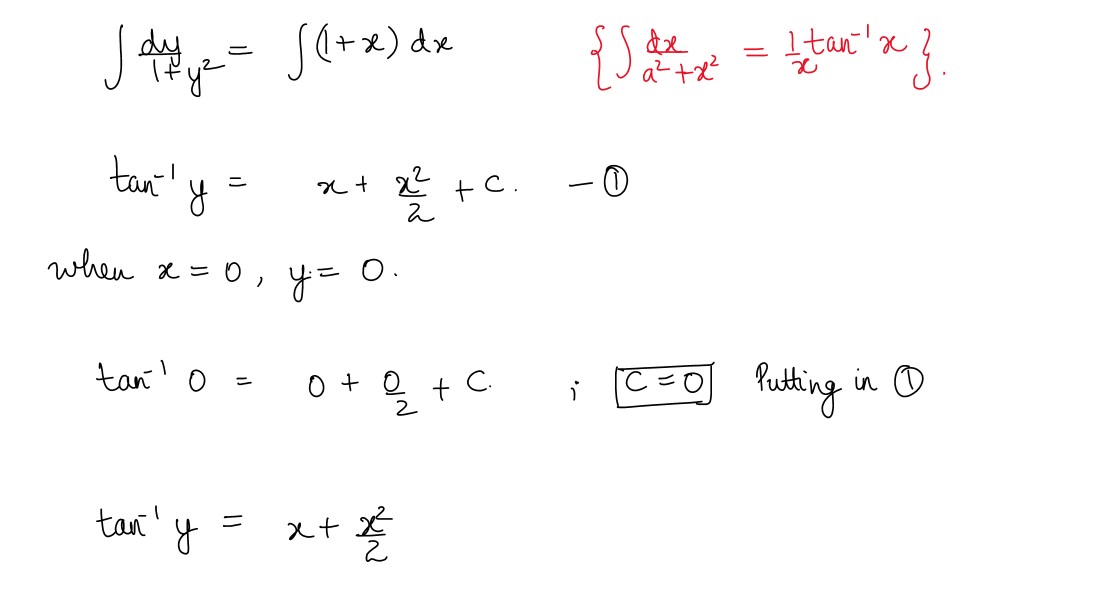 ∫ dy/(1+y²) = ∫ (1+x) dx {∫ dx/(a²+x²) = 1/x tan⁻¹ x}.
tan⁻¹ y = x + x²/2 + C. – ①
when x = 0, y = 0.
tan⁻¹ 0 = 0 + 0/2 + C. ; C = 0 Putting in ①
tan⁻¹ y = x + x²/2